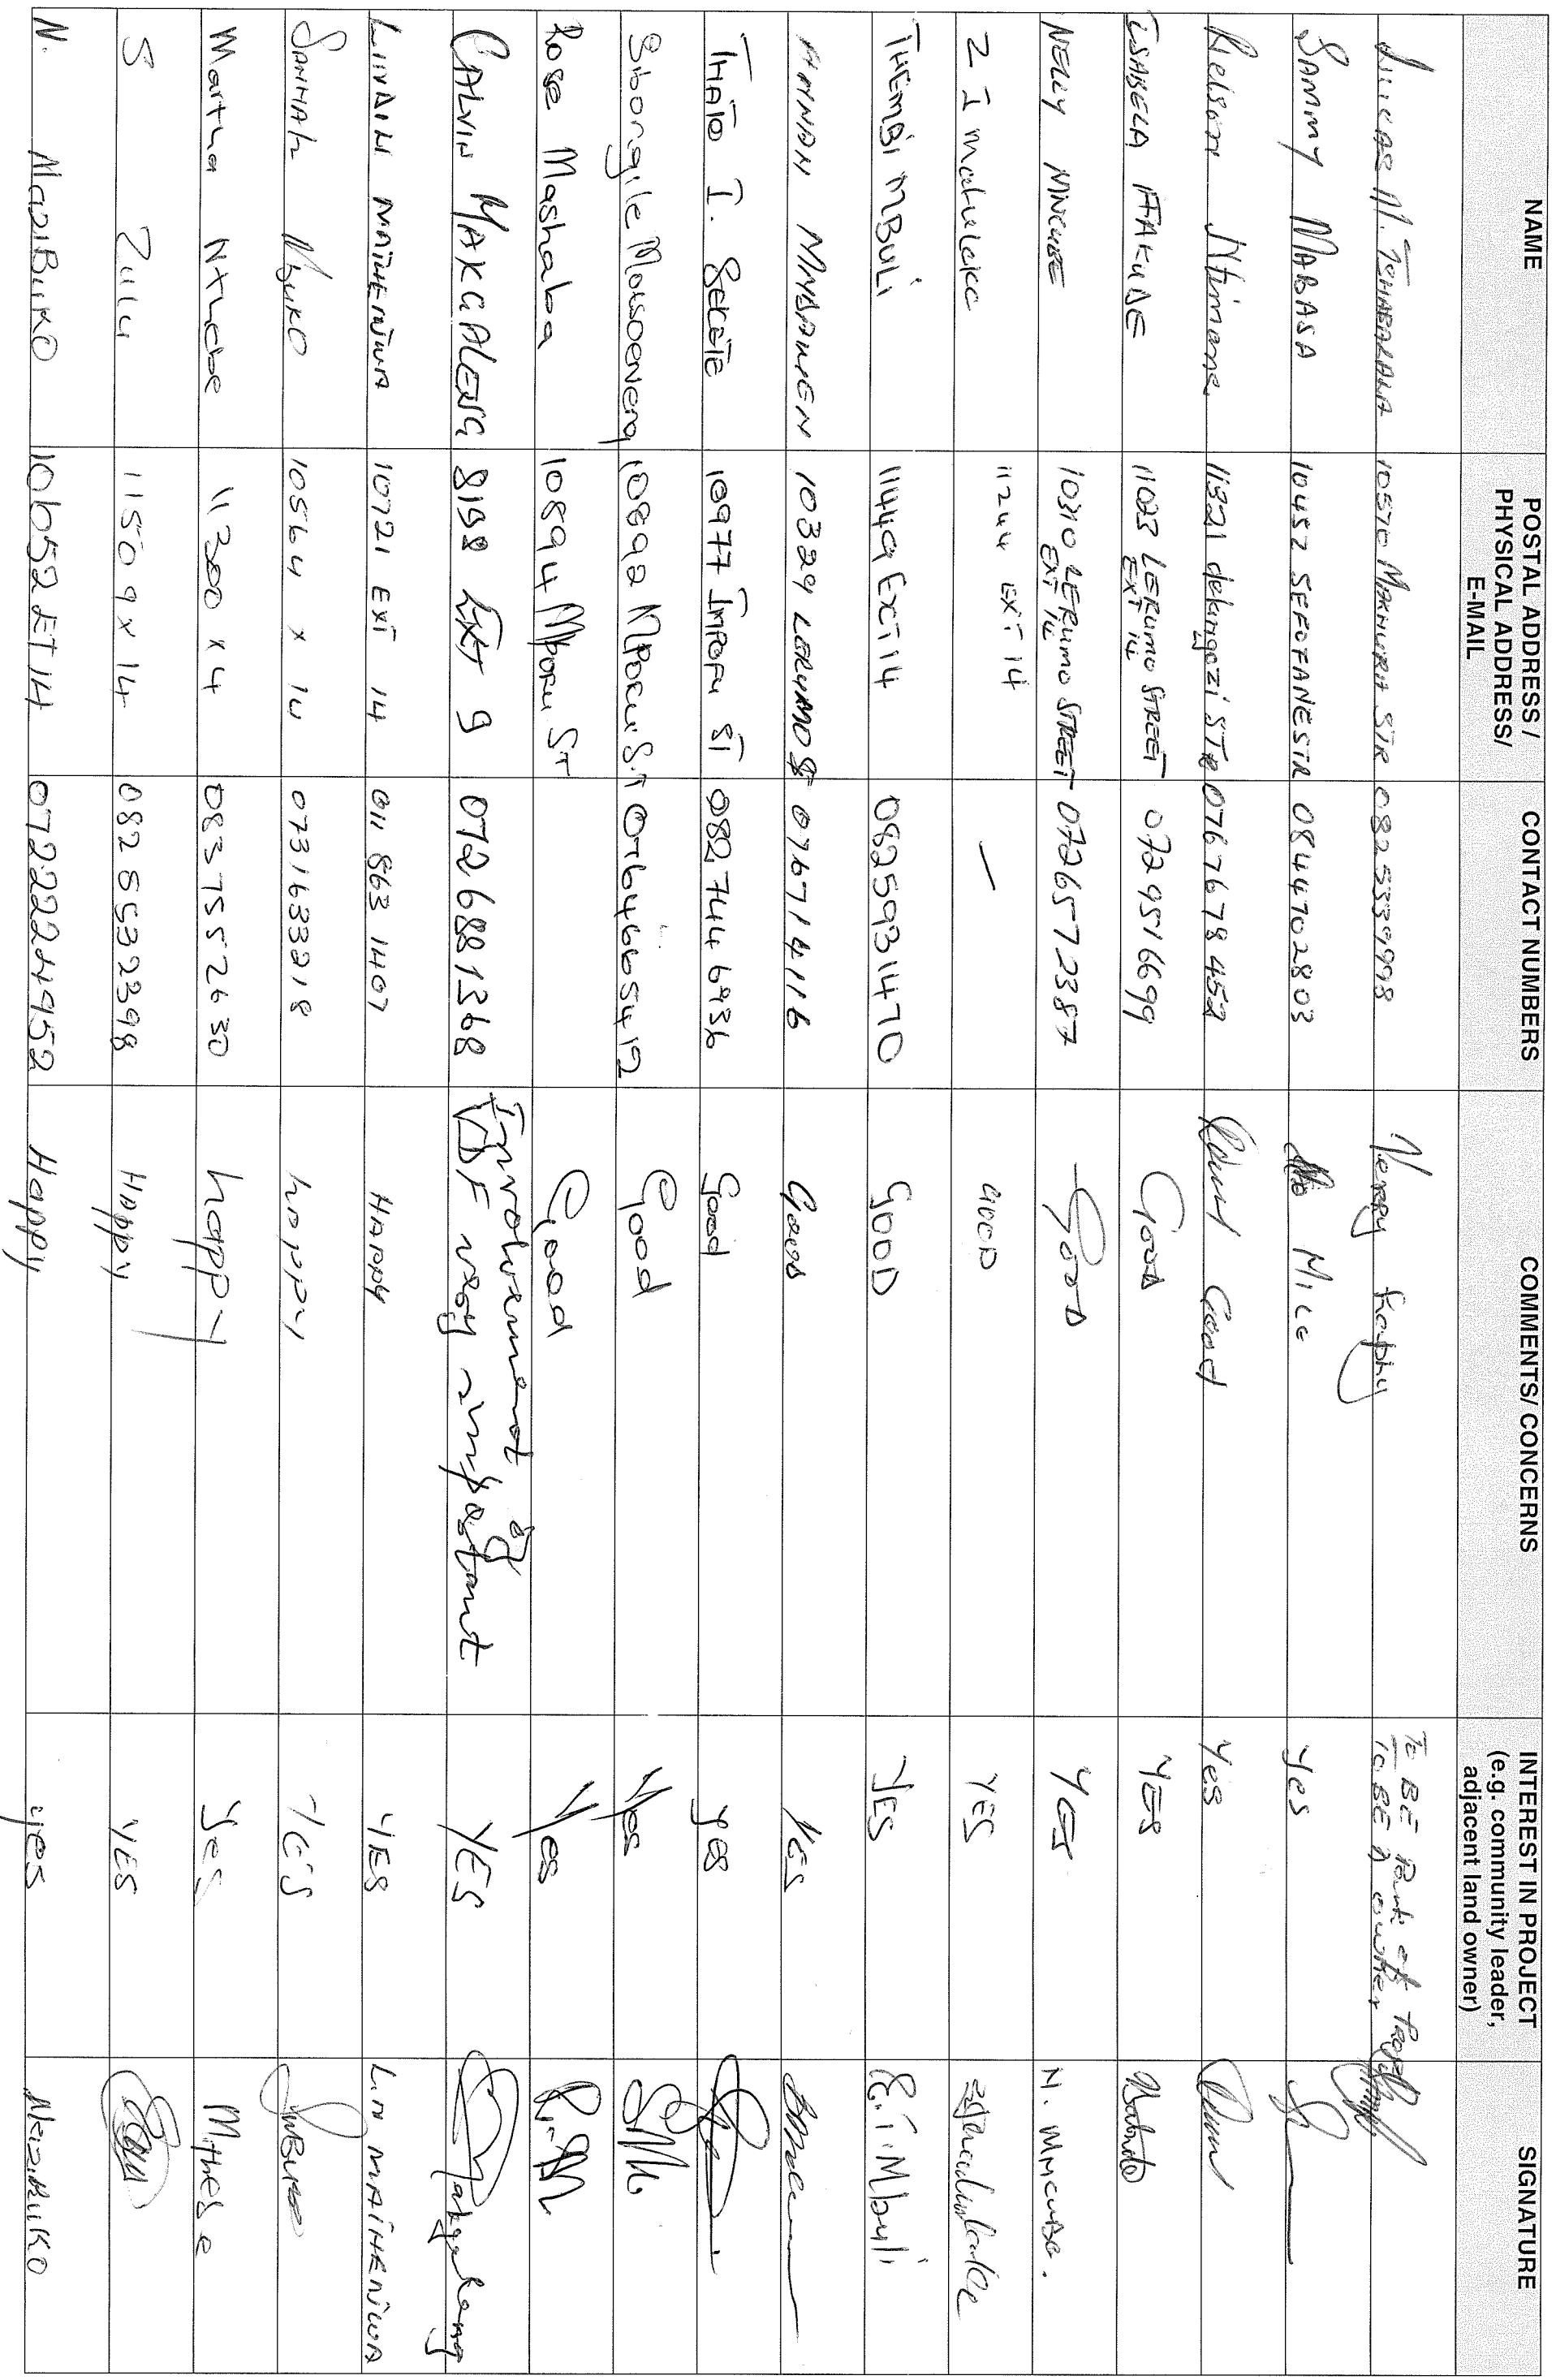 NAME
POSTAL ADDRESS /
PHYSICAL ADDRESS/
E-MAIL
CONTACT NUMBERS
COMMENTS/ CONCERNS
INTEREST IN PROJECT
(e.g. community leader,
adjacent land owner)
SIGNATURE
M. TSHABALALA 10570 MAKHURA STR 0825339998 Verry happy To BE Part of
To BE A owner
SAMMY MABASA 10452 SEFOFANE STR 0844702803 yes
Nelson Ntimane 11321 STR 0767678452 Good Yes
ISABELA 11023 LERUMO STREET 0729516699 GOOD YES
EXT 14
NELLY MNCUBE 10310 LERUMO STREET 0726572387 GOOD YES N. MNCUBE.
EXT 14
Z I 11244 EXT 14 — GOOD YES
THEMBI MBULI 11449 Ext 14 0825931470 GOOD YES Mbuli
10329 LERUMO ST 0767141116 Good YES
THATO I. SEKETE 10977 IMPOFU ST 082 744 6936 Good yes
Sibongile Mokoeneng 10892 MPOFU ST 0764665412 Good Yes
Rose Mashaba 10894 Mpofu ST Good Yes
CALVIN MAKGALENG 8198 EXT 9 0726881368 Involvement of
VDF very important YES
10721 EXT 14 011 863 1407 HAPPY YES
10564 x 14 0731633218 happy YES
Martha Nthebe 11300 x 4 0837552630 happy Yes
S Zulu 11509 x 14 0828532398 Happy YES
N. MAZIBUKO 10652 ET 14 0722224952 Happy yes